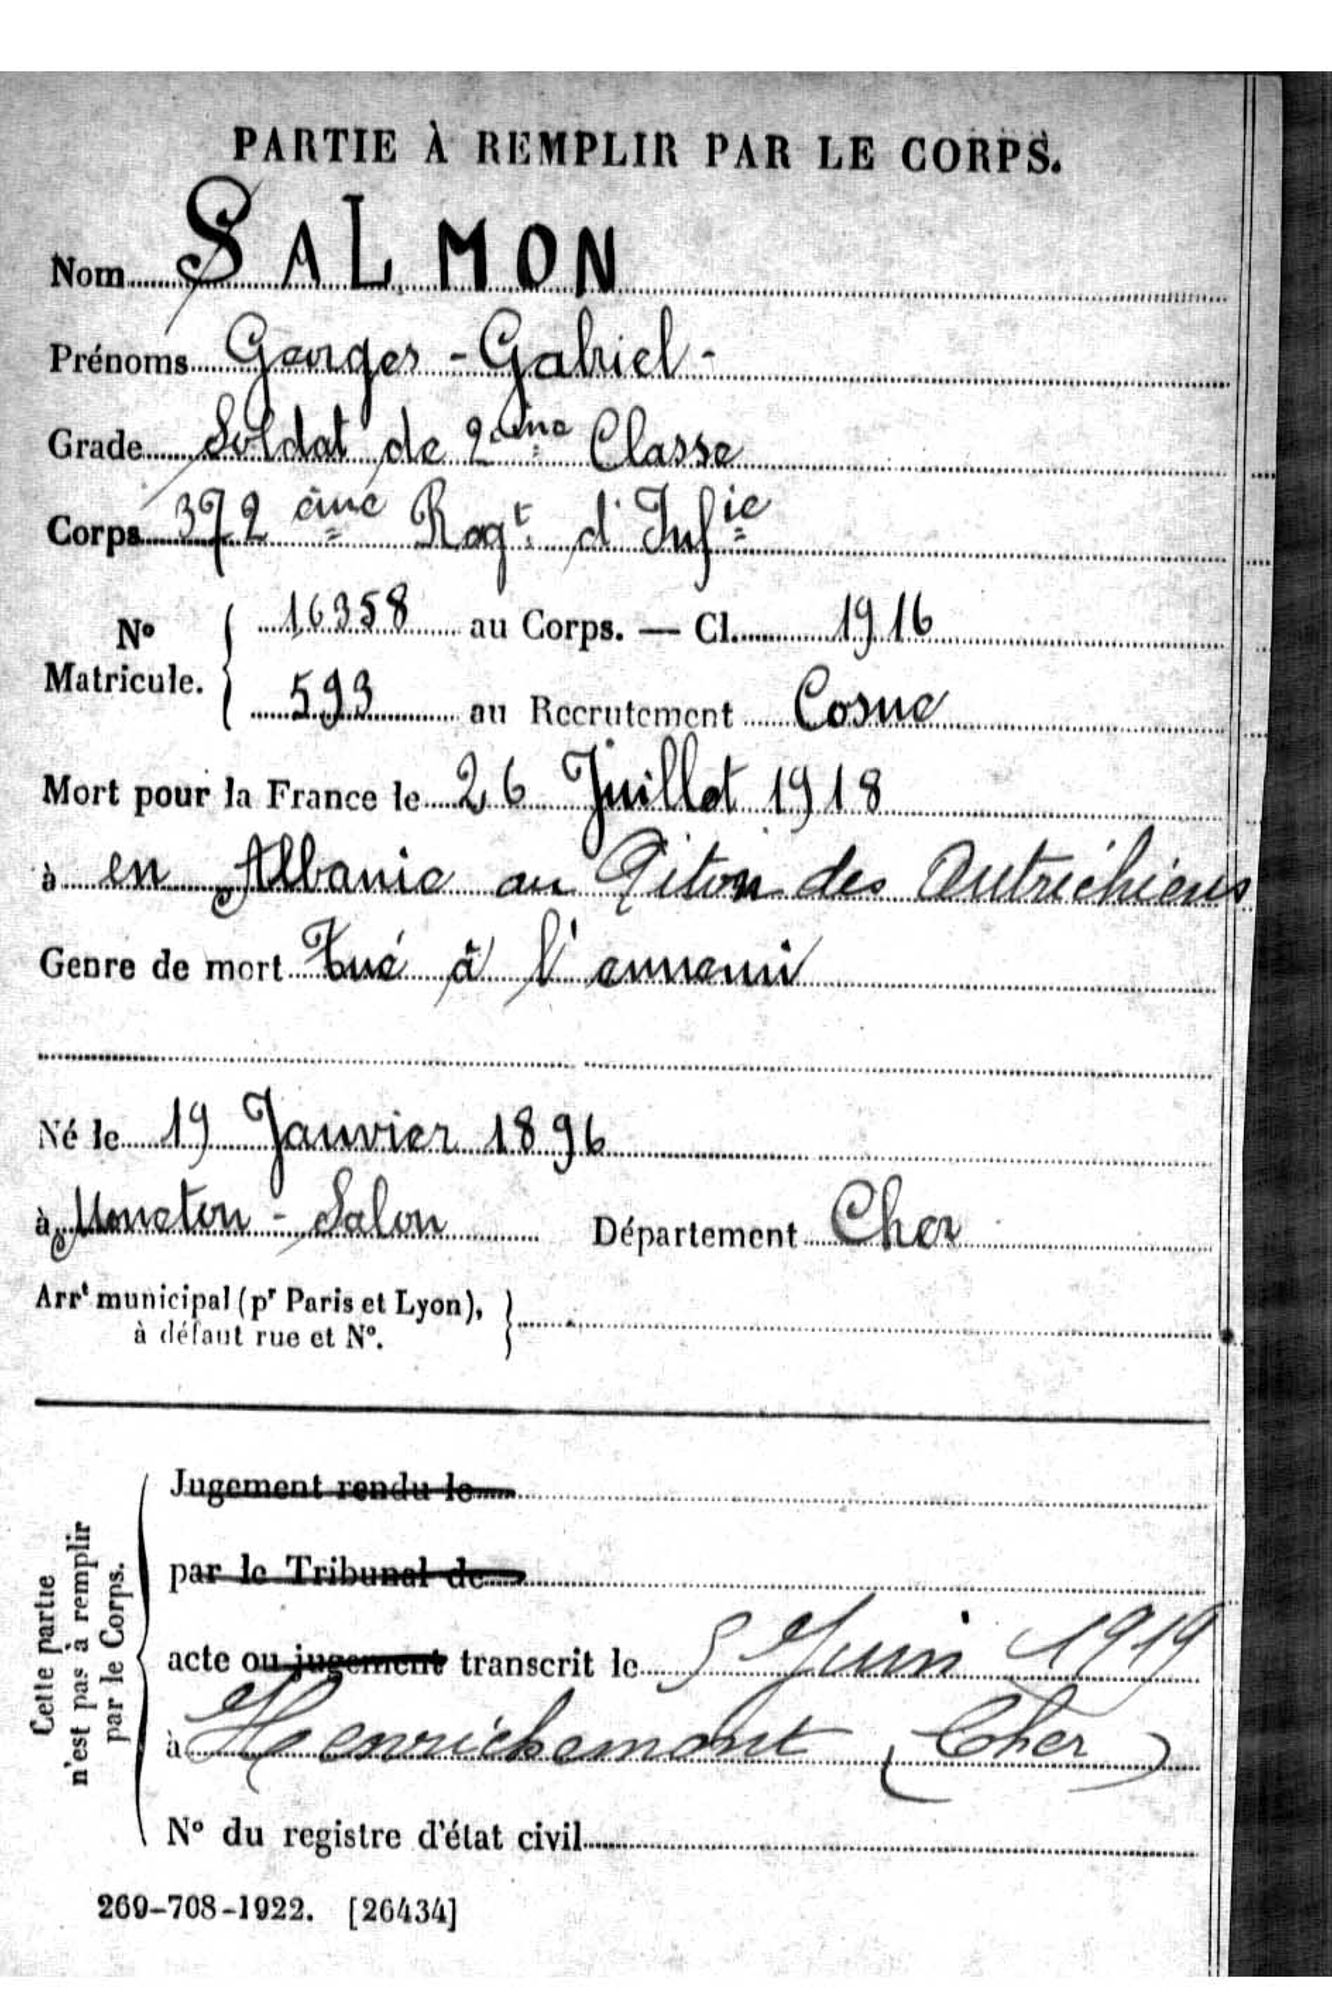 PARTIE À REMPLIR PAR LE CORPS.
Nom SALMON
Prénoms Georges - Gabriel -
Grade Soldat de 2ème Classe
Corps 372 ème Regt d'Infie
No Matricule. 16358 au Corps. — Cl. 1916
593 au Recrutement Cosne
Mort pour la France le 26 Juillet 1918
à en Albanie au Piton des Autrichiens
Genre de mort Tué à l'ennemi
Né le 19 Janvier 1896
à Menetou - Salon Département Cher
Arrt municipal (pr Paris et Lyon),
à défaut rue et No.
Cette partie
n'est pas à remplir
par le Corps.
Jugement rendu le
par le Tribunal de
acte ou jugement transcrit le 5 Juin 1919
à Henrichemont (Cher)
No du registre d'état civil
269-708-1922. [26434]